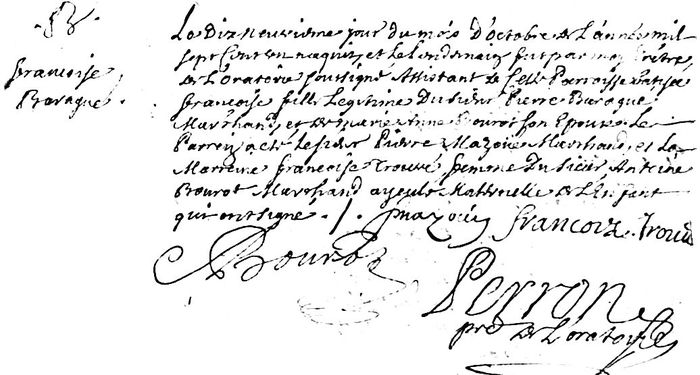 françoise
Baraque.
Le dix neuvieme jour du mois d'octobre de l'année mil
sept cent un naquit, et le lendemain fut par moy Prêtre
de L'oratoire soussigné Assistant de cette Parroisse
françoise fille Legitime du sieur Pierre Baraque
Marchand, et de marie Anne Bourot son Epouse Le
Parrein, a eté Le sieur Pierre Mazois Marchand, et La
Marreine françoise Trouvé femme du sieur Antoine
Bourot Marchand ayeule Maternelle de L'Enfant
qui ont signé.
francoize
Bourot
Perron
de L'oratoire